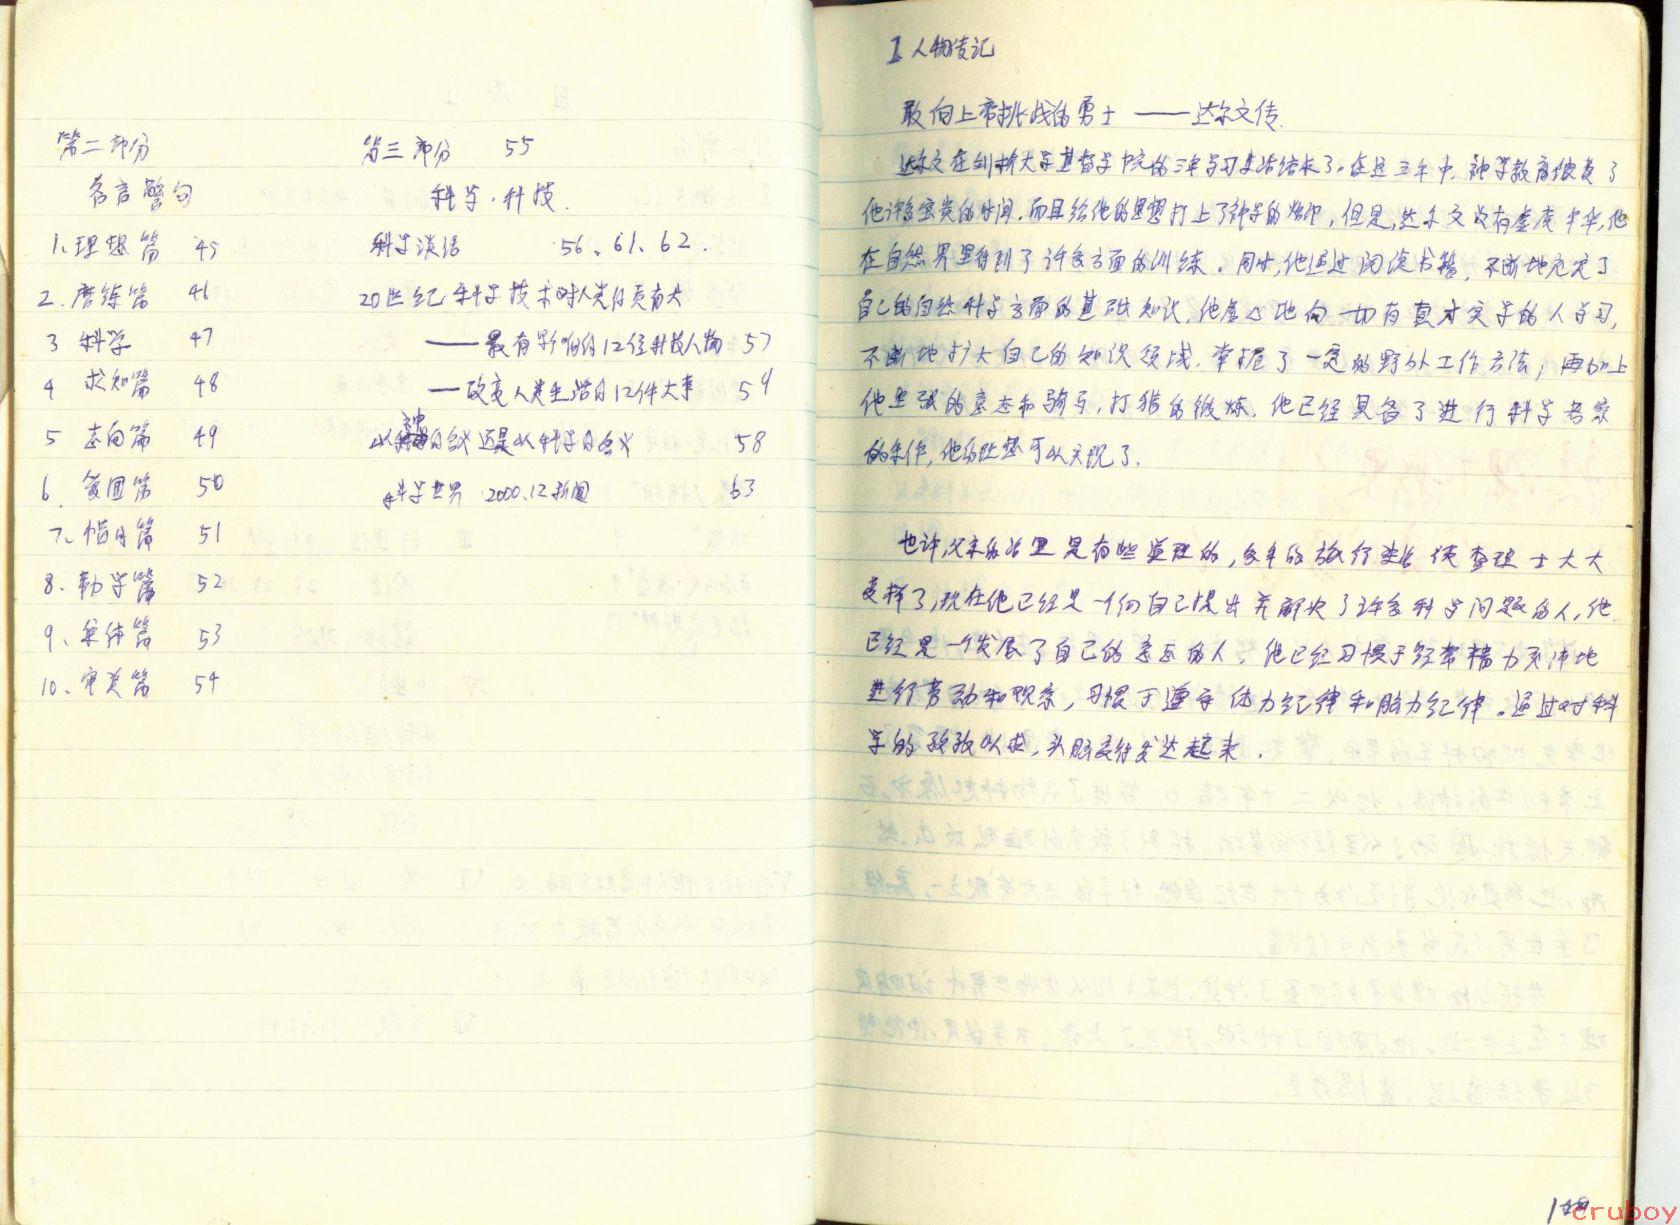 第二部分
名言警句
1、理想篇 45
2、磨练篇 46
3 科学 47
4 求知篇 48
5 志向篇 49
6、爱国篇 50
7、惜时篇 51
8、勤学篇 52
9、集体篇 53
10、审美篇 54
第三部分 55
科学·科技
科学谈话 56、61、62.
20世纪科学技术对人类的贡有大
——最有影响的12位科技人物 57
——改变人类生活的12件大事 59
以神的名义还是以科学的名义 58
科学世界 2000.12新闻 63
I 人物传记
敢向上帝挑战的勇士——达尔文传
达尔文在剑桥大学基督学院的三年学习生活结束了。在这三年中,神学教育浪费了
他许多宝贵的时间,而且给他的思想打上了神学的烙印,但是,达尔文没有虚度年华,他
在自然界里得到了许多方面的训练。同时,他通过阅读书籍,不断地充实了
自己的自然科学方面的基础知识,他虚心地向一切有真才实学的人学习,
不断地扩大自己的知识领域,掌握了一定的野外工作方法;再加上
他坚强的意志和骑马,打猎的锻炼,他已经具备了进行科学考察
的条件,他的理想可以实现了.
也许,父亲的话里是有些道理的,多年的旅行生活使查理士大大
变样了,现在他已经是一个向自己提出并解决了许多科学问题的人,他
已经是一个发展了自己的意志的人。他已经习惯于经常精力充沛地
进行劳动和观察,习惯于遵守体力纪律和脑力纪律。通过对科
学的孜孜以求,头脑变得发达起来.
cruboy